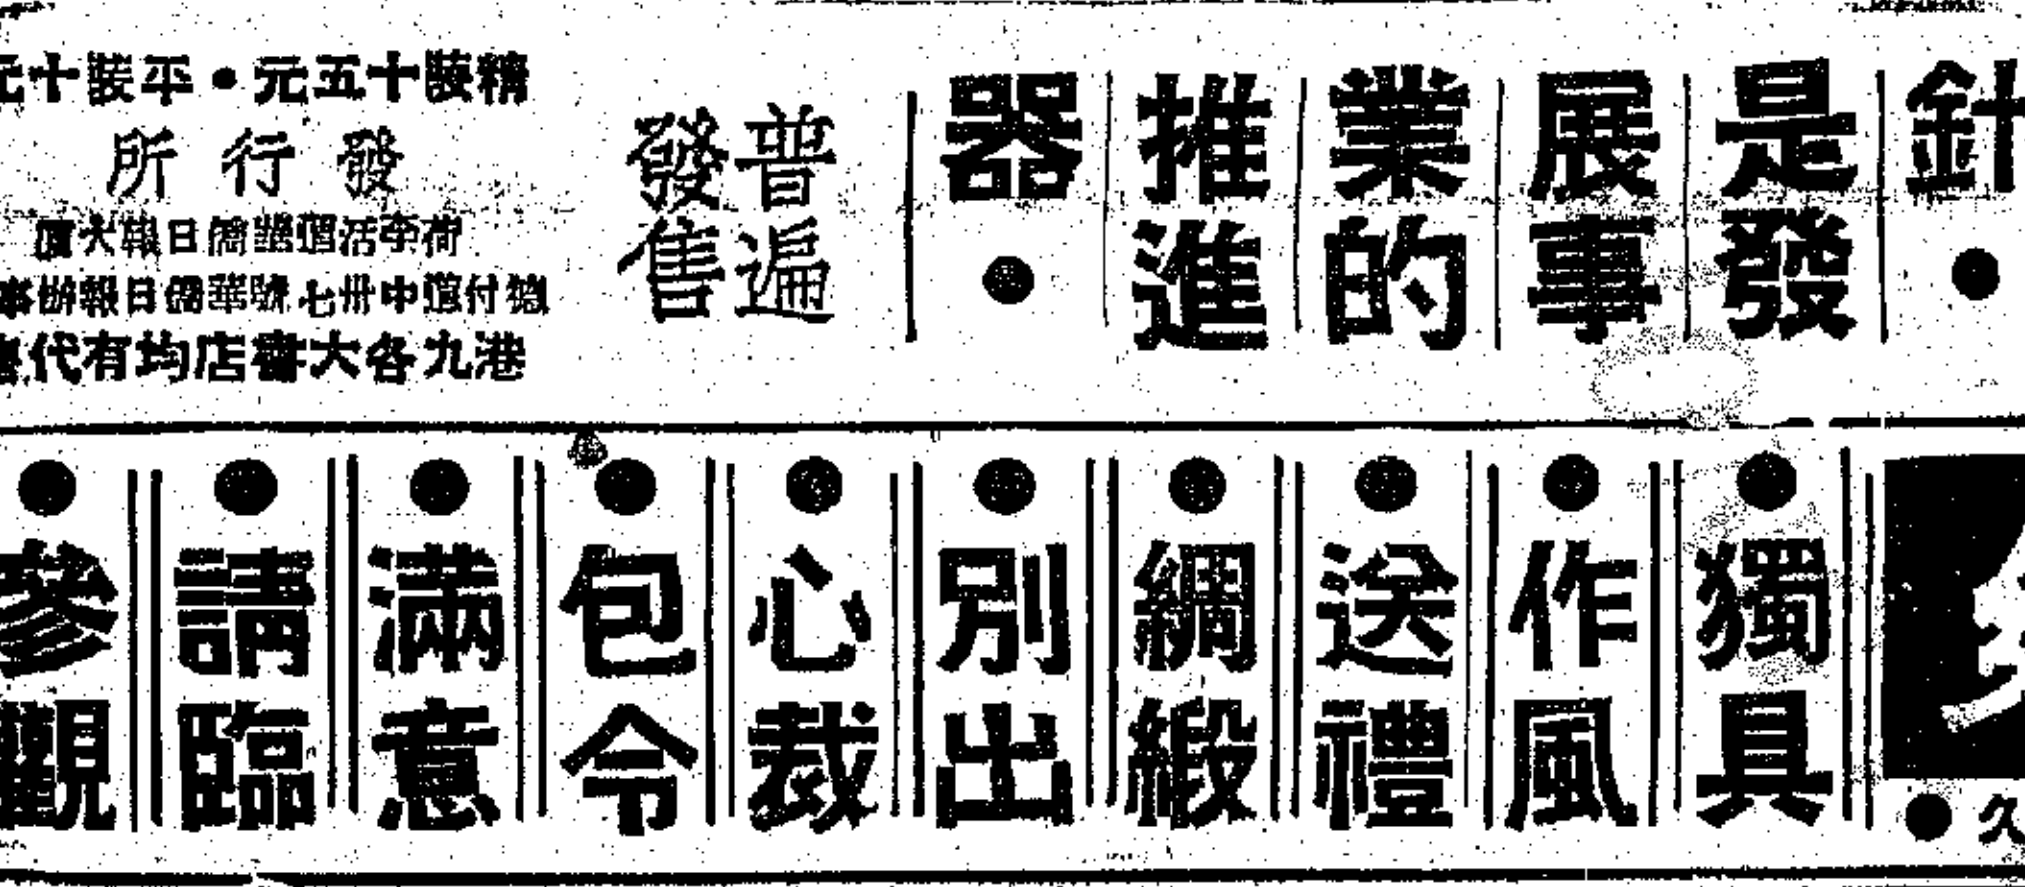 針●
是發
展事
業的
推進
器●
普遍
發售
精裝十五元●平裝十元
發行所
荷李活道華僑日報大廈
港九各大書店均有代售
●獨具
●作風
●送禮
●綢緞
●別出
●心裁
●包令
●滿意
●請臨
●參觀
●久